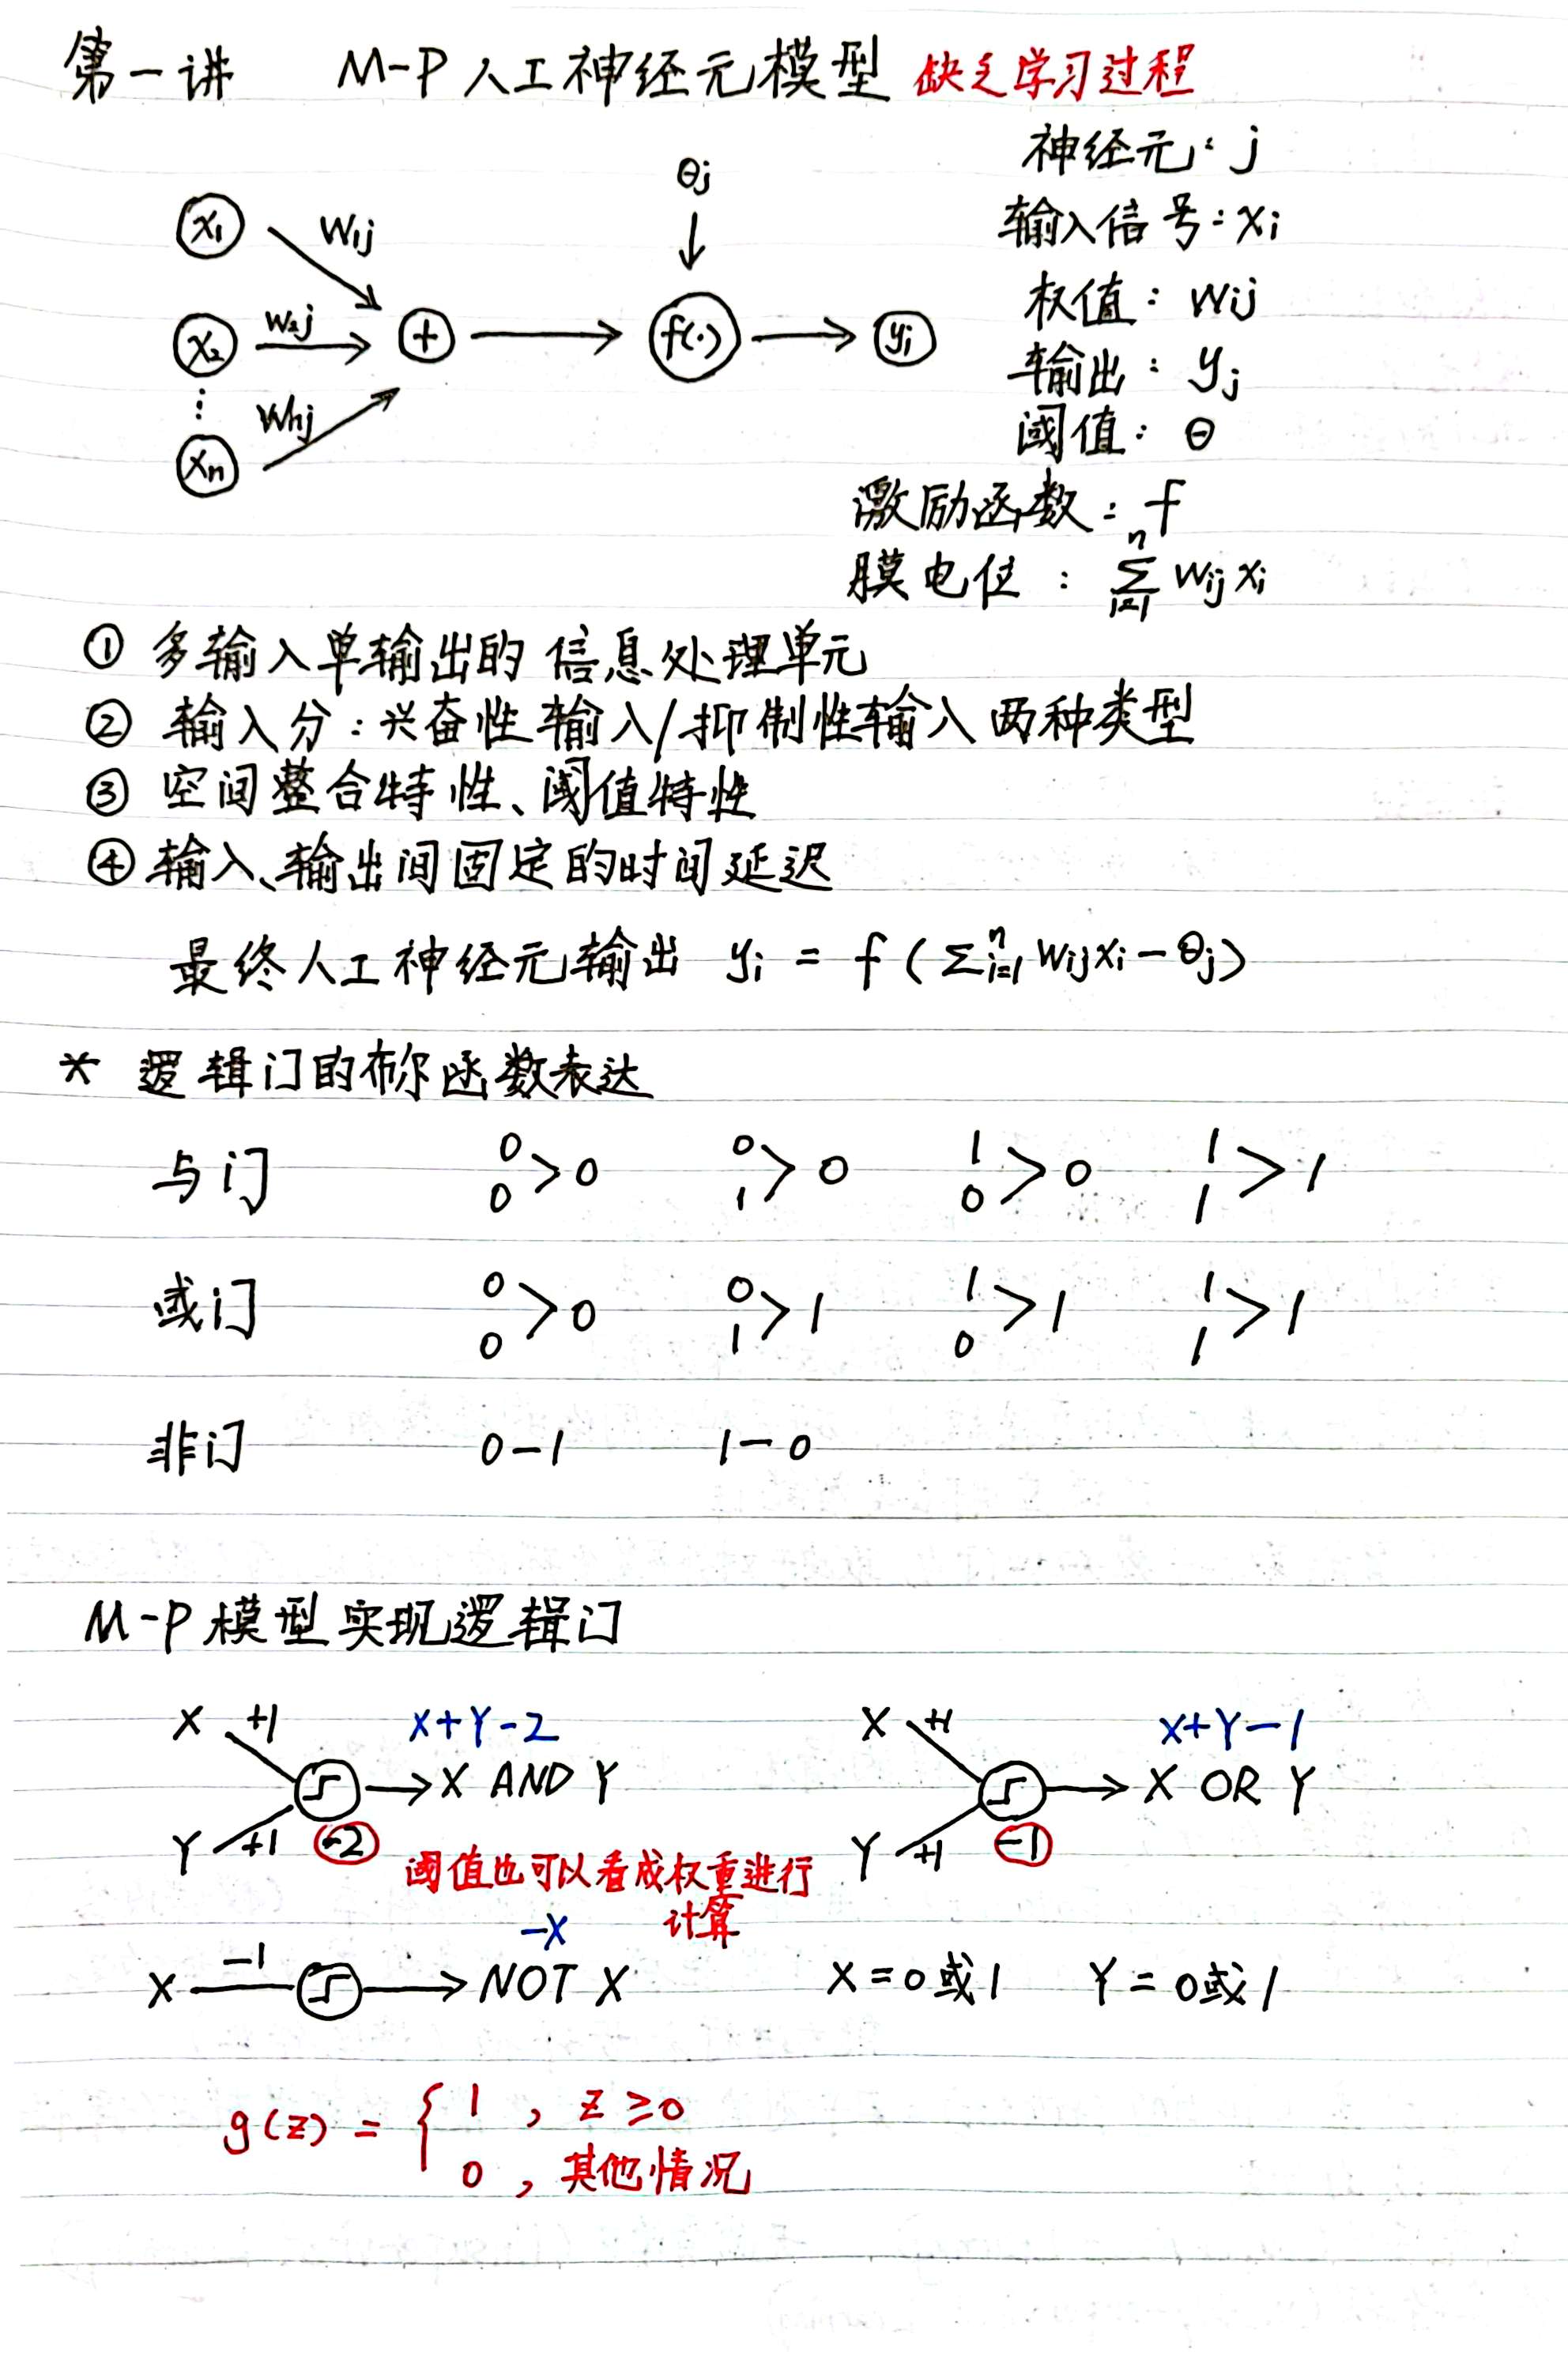 第一讲 M-P人工神经元模型 缺乏学习过程
神经元: j
θj
输入信号: xi
x1 W1j
权值: Wij
x2 W2j + f(·) yi
输出: yj
⋮ Whj
阈值: θ
xn
激励函数: f
膜电位: ∑ⁿᵢ₌₁ Wij xi
① 多输入单输出的信息处理单元
② 输入分:兴奋性输入/抑制性输入两种类型
③ 空间整合特性、阈值特性
④ 输入、输出间固定的时间延迟
最终人工神经元输出 yi = f(∑ⁿᵢ₌₁ Wijxi-θj)
* 逻辑门的布尔函数表达
与门 0 0 > 0 0 1 > 0 1 0 > 0 1 1 > 1
或门 0 0 > 0 0 1 > 1 1 0 > 1 1 1 > 1
非门 0-1 1-0
M-P模型实现逻辑门
X +1 X+Y-2
→ X AND Y
Y +1 -2
阈值也可以看成权重进行
计算
X +1 X+Y-1
→ X OR Y
Y +1 -1
-X
X -1 → NOT X X=0或1 Y=0或1
g(z) = { 1 , z ≥0
0 , 其他情况